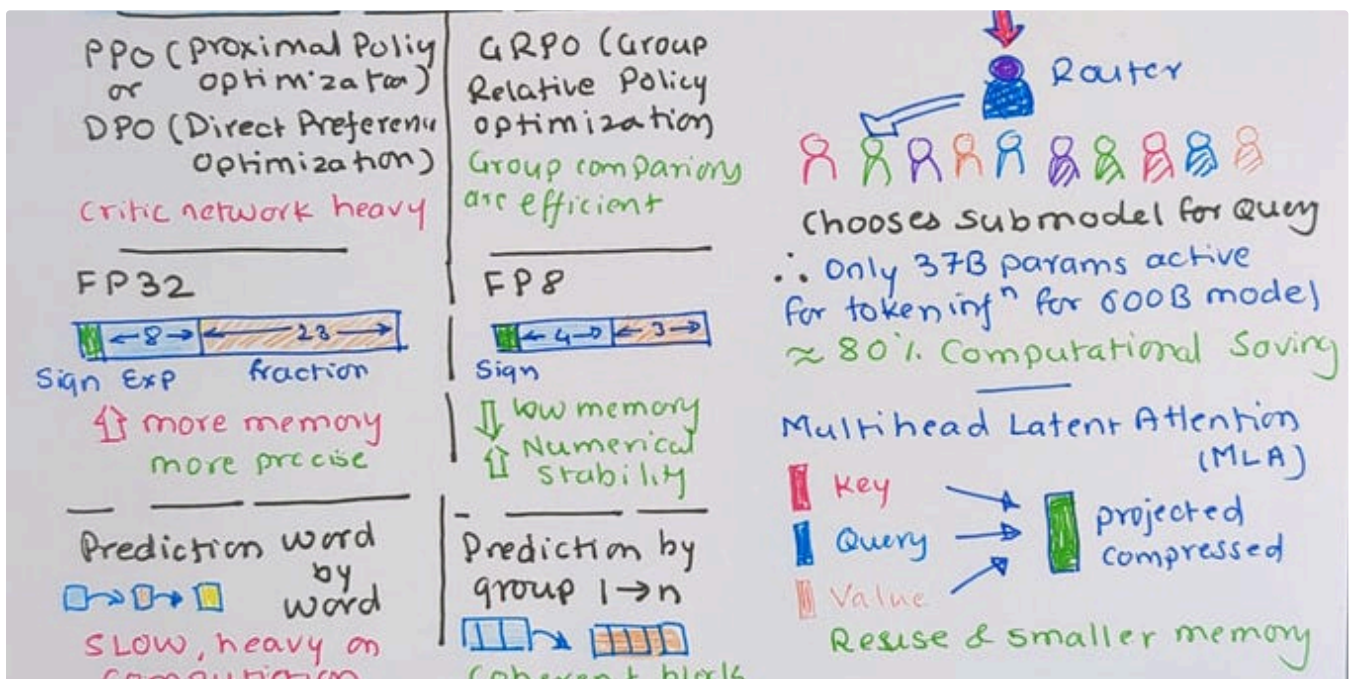 PPO (Proximal Policy
or optimization)
DPO (Direct Preference
optimization)
Critic network heavy
FP32
8 23
Sign Exp fraction
more memory
more precise
Prediction word
by
word
SLOW, heavy on
computation
GRPO (Group
Relative Policy
optimization)
Group comparions
are efficient
FP8
4 3
Sign
low memory
Numerical
stability
Prediction by
group 1→n
Coherent block
Router
Chooses submodel for Query
∴ Only 37B params active
for token infⁿ for 600B model
≈ 80% Computational Saving
Multihead Latent Attention
(MLA)
Key
Query
Value
projected
compressed
Resuse & smaller memory